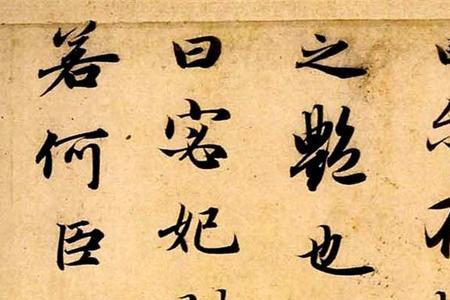 之艷也
曰宓妃
若何臣